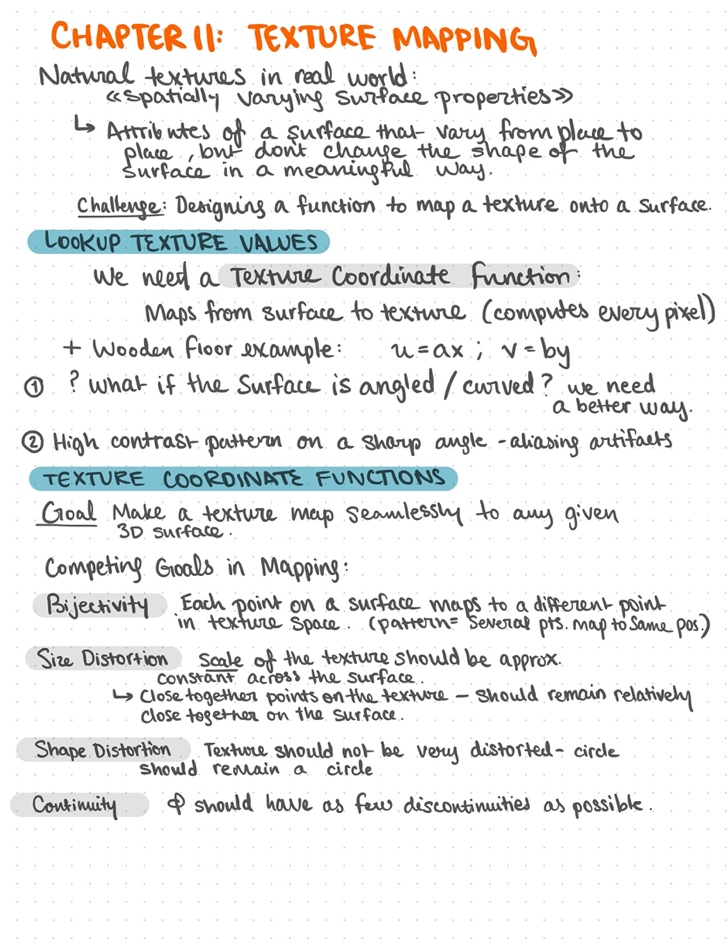 CHAPTER 11: TEXTURE MAPPING
Natural textures in real world:
«spatially varying surface properties»
↳ Attributes of a surface that vary from place to
place, but don't change the shape of the
surface in a meaningful way.
Challenge: Designing a function to map a texture onto a surface.
LOOKUP TEXTURE VALUES
We need a Texture Coordinate Function:
Maps from surface to texture (computes every pixel)
+ Wooden floor example: u=ax; v=by
① ? What if the surface is angled / curved? we need
a better way.
② High contrast pattern on a sharp angle - aliasing artifacts
TEXTURE COORDINATE FUNCTIONS
Goal Make a texture map seamlessly to any given
3D surface.
Competing Goals in Mapping:
Bijectivity Each point on a surface maps to a different point
in texture space. (pattern= several pts. map to same pos.)
Size Distortion Scale of the texture should be approx.
constant across the surface.
↳ Close together points on the texture - should remain relatively
close together on the surface.
Shape Distortion Texture should not be very distorted- circle
should remain a circle
Continuity ϕ should have as few discontinuities as possible.